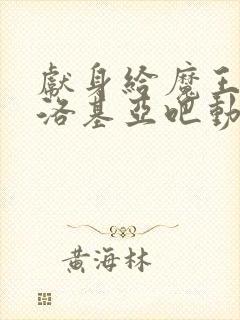 獻身給魔王
洛基亞吧動
黃海林